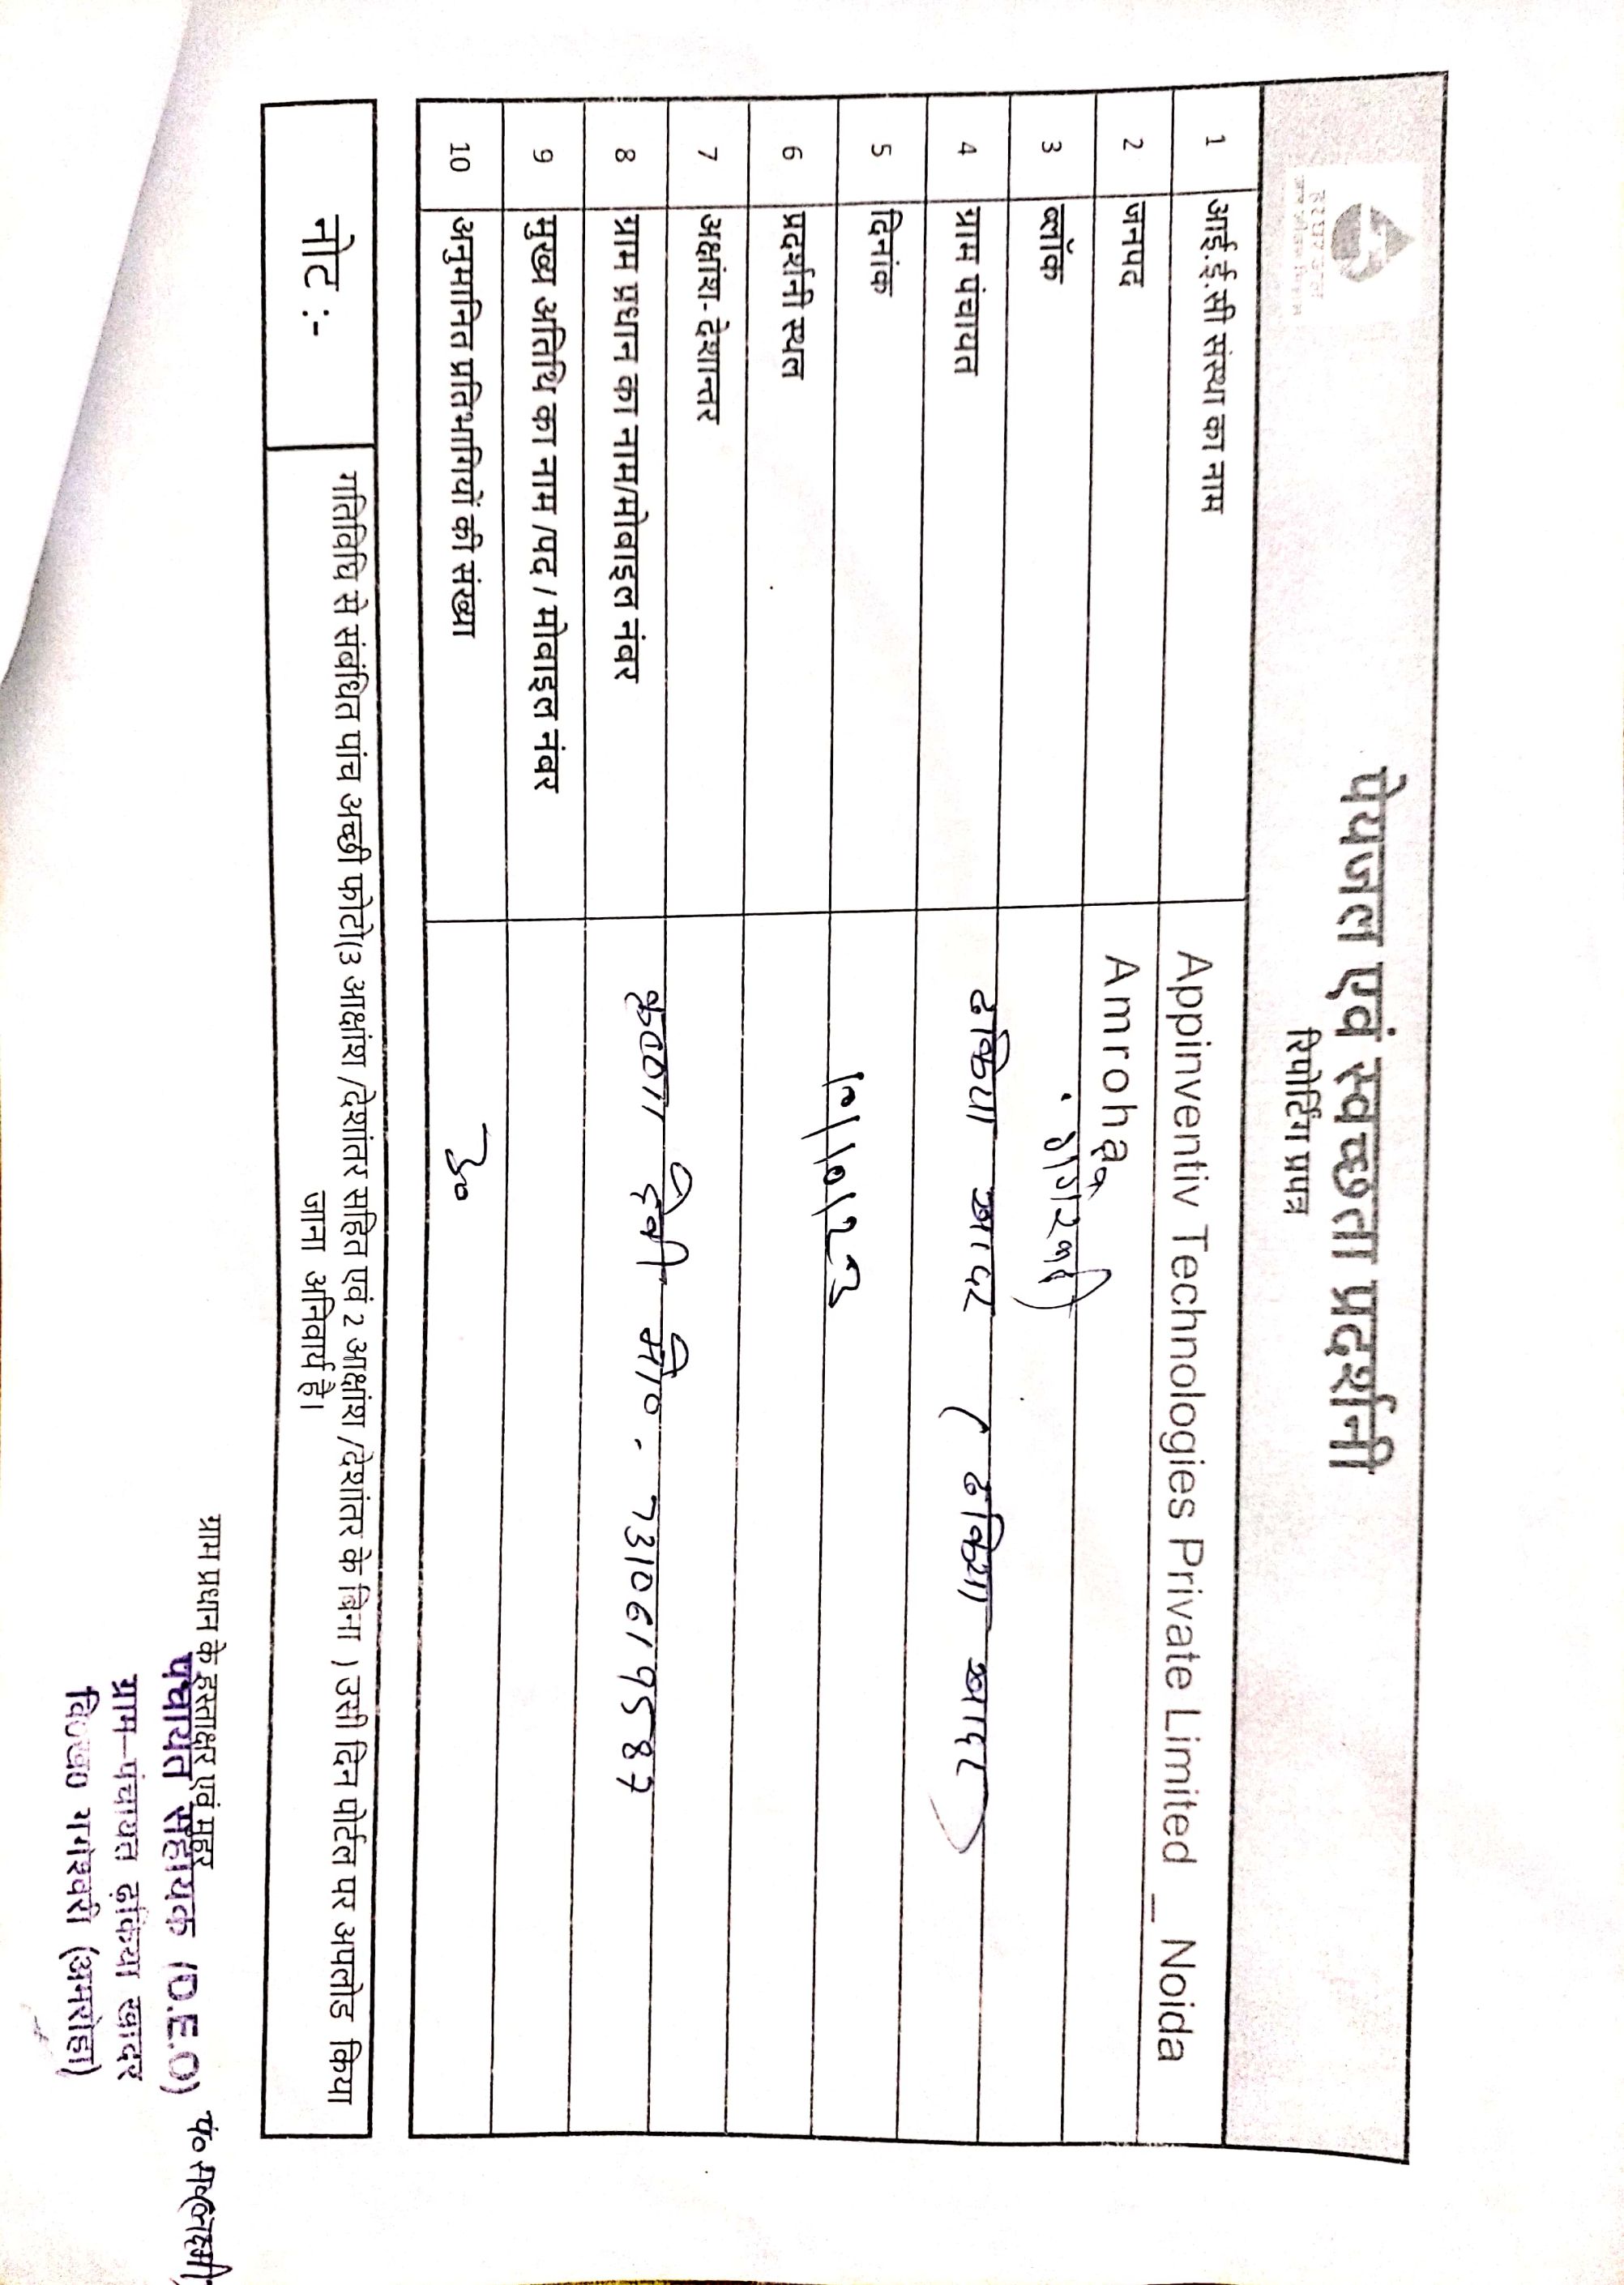 पेयजल एवं स्वच्छता प्रदर्शनी
रिपोर्टिंग प्रपत्र
1 आई.ई.सी संस्था का नाम Appinventiv Technologies Private Limited _ Noida
2 जनपद Amroha
3 ब्लॉक
4 ग्राम पंचायत ढकिया खादर ( ढकिया खादर )
5 दिनांक 10/10/23
6 प्रदर्शनी स्थल
7 अक्षांश- देशान्तर
8 ग्राम प्रधान का नाम/मोबाइल नंबर देवी मो० . 7310619587
9 मुख्य अतिथि का नाम /पद / मोबाइल नंबर
10 अनुमानित प्रतिभागियों की संख्या
नोट :-
गतिविधि से संबंधित पांच अच्छी फोटो(3 आक्षांश /देशांतर सहित एवं 2 आक्षांश /देशांतर के बिना ) उसी दिन पोर्टल पर अपलोड किया
जाना अनिवार्य है।
ग्राम प्रधान के हस्ताक्षर एवं मुहर
पंचायत सहायक (D.E.O)
ग्राम-पंचायत ढ़किया खादर
वि०ख० गंगेश्वरी (अमरोहा)